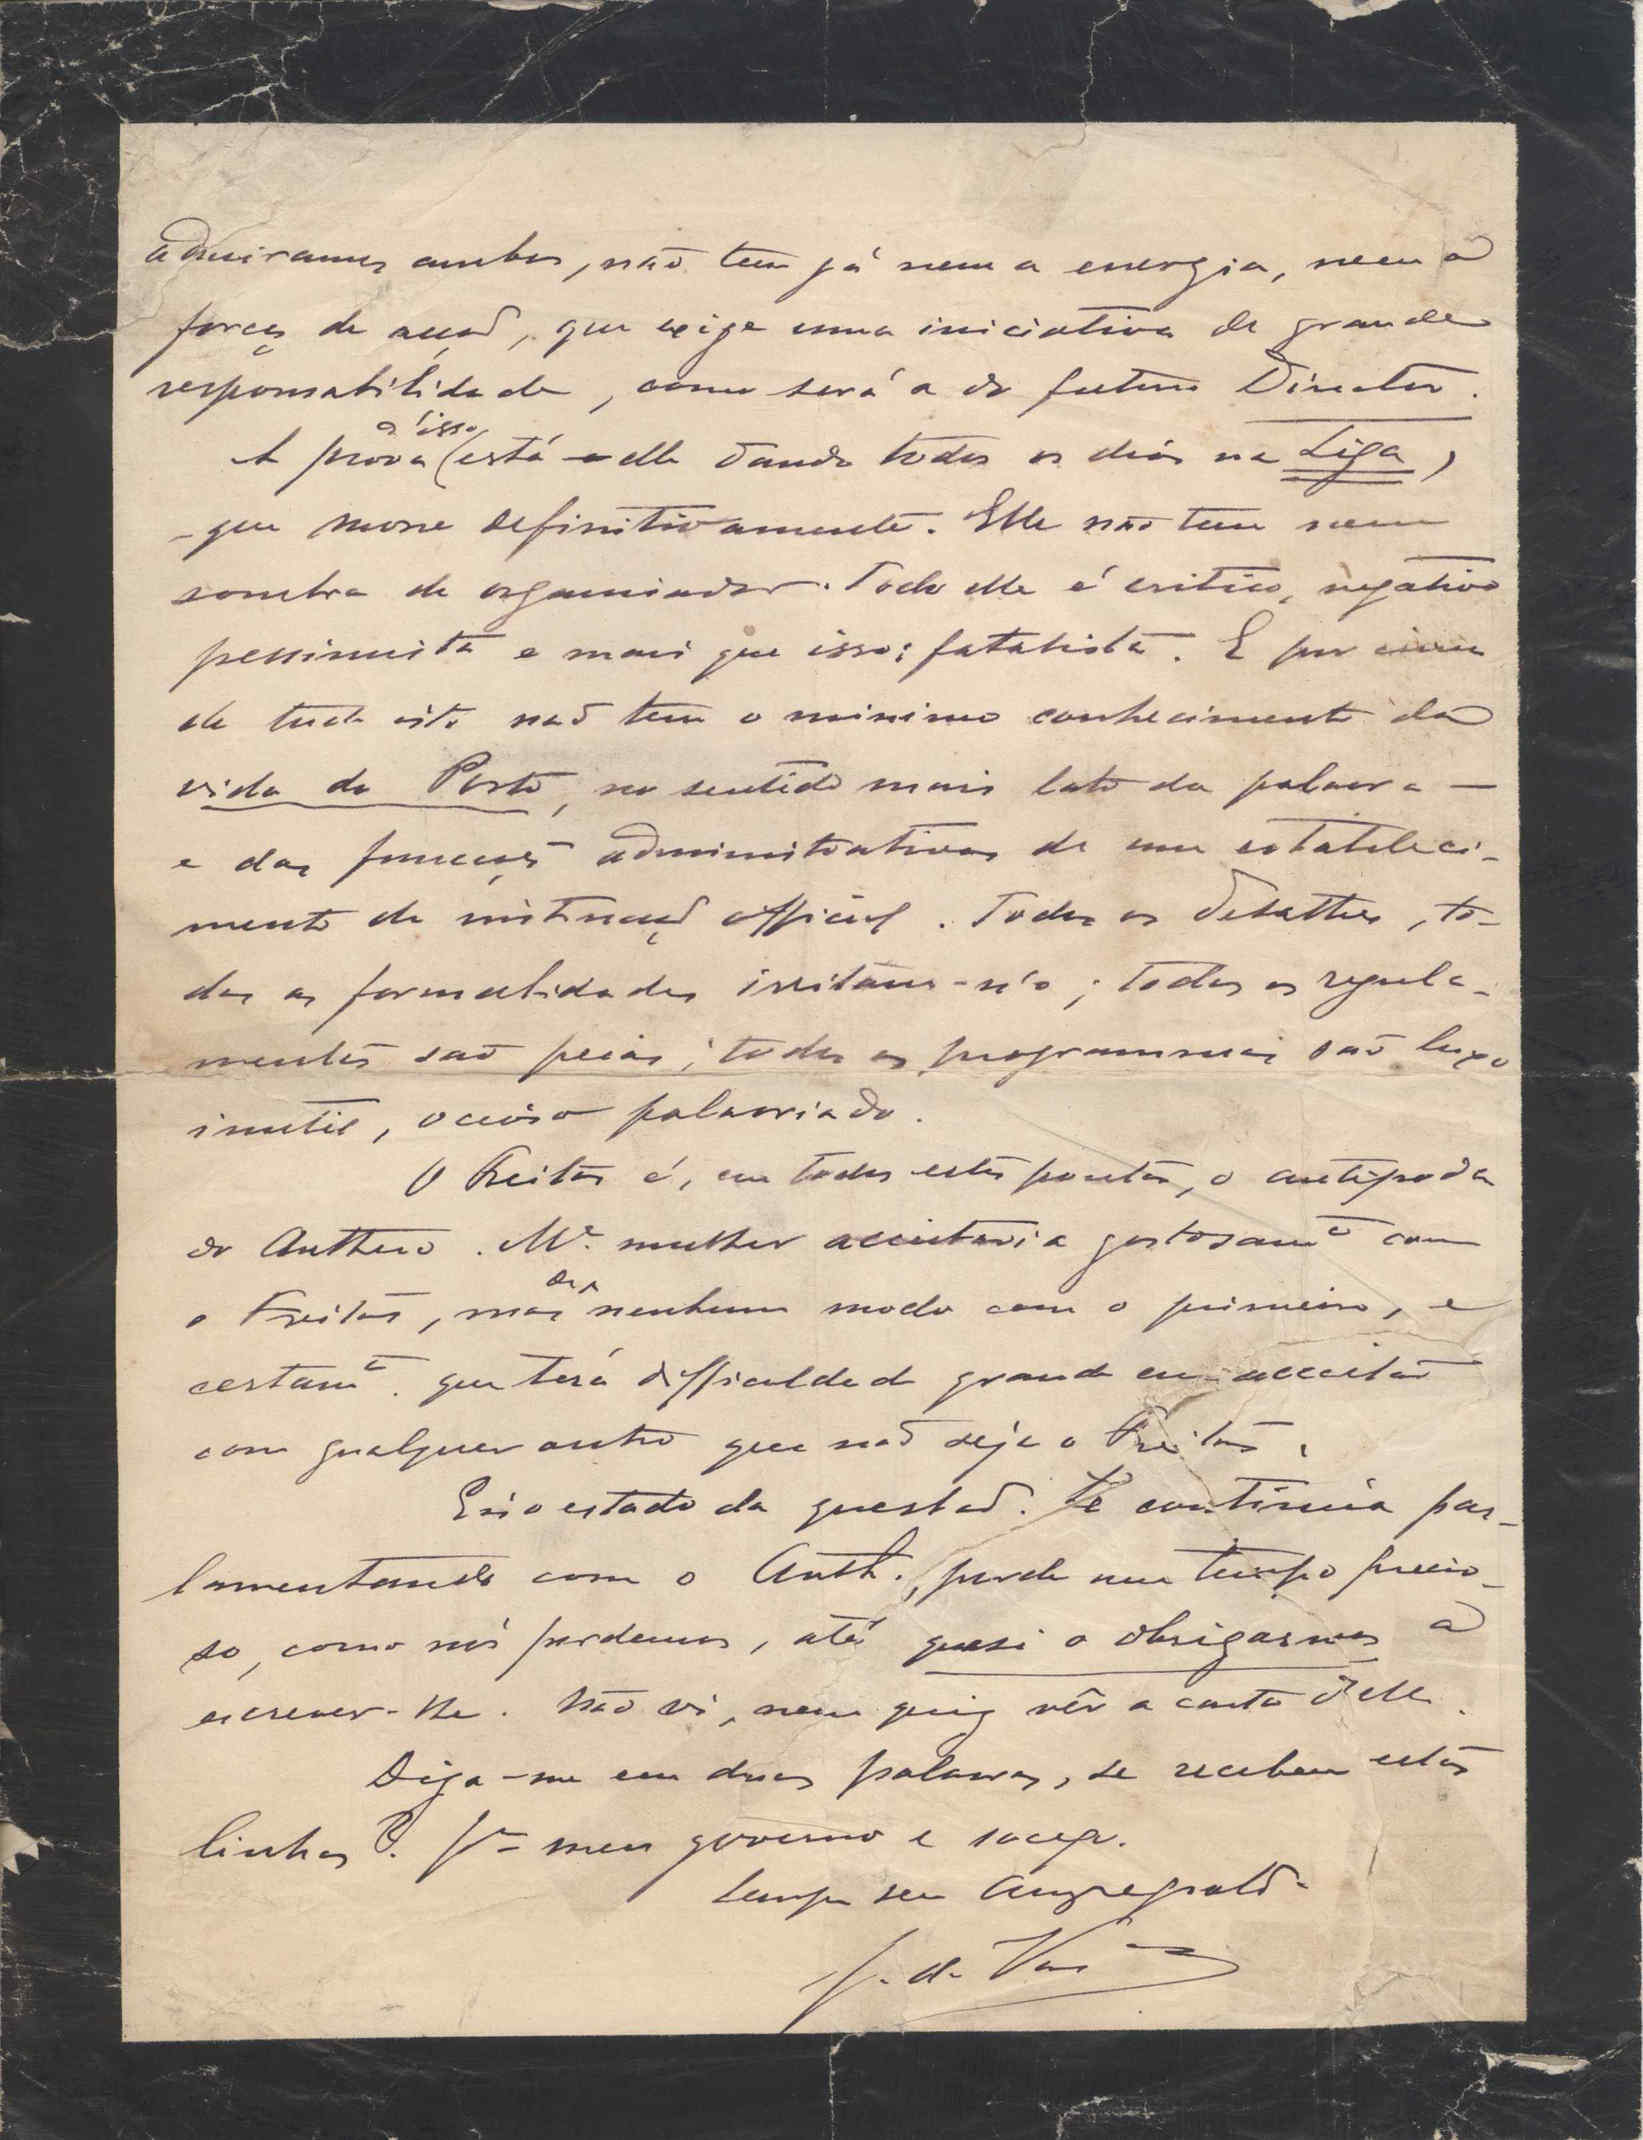 admiramos ambos, não tem já nem a energia, nem a
forças de acçaõ, que exige uma iniciativa de grande
responsabilidade, como será a do futuro Director.
d'isso
A prova (está-a elle dando todos os dias na Liga,
- que morre definitivamente. Elle não tem nem
sombra de organisador. Todo elle é critico, negativo
pessimista e mais que isso: fatalista. E por cima
de tudo isto naõ tem o minimo conhecimento da
vida do Porto, no sentido mais lato da palavra —
e das funcções administrativas de um estabeleci-
mento de instrucçaõ official. Todos os detalhes, to-
das as formalidades irritam-n'o; todos os regula-
mentos saõ peias; todos os programmas saõ luxo
inutil, ocioso palavriado.
O Freitas é, em todos estes pontos, o antipoda
do Anthero. Mª. mulher acceitaria gostosamᵉ com
de
o Freitas, mas nenhum modo com o primeiro, e
certamᵉ. que terá difficuldade grande em acceitar
com qualquer outro que naõ seja o Freitas.
Eis o estado da questaõ. Se continúa par-
lamentando com o Anth., perde um tempo precio-
so, como nós perdemos, até quasi o obrigarmos a
escrever-lhe. Não vi, nem quiz vêr a carta d'elle.
Diga-me em duas palavras, se recebeu estas
linhas? Pª meu governo e socego.
Sempre seu Amº e obgdº
J. de Vas